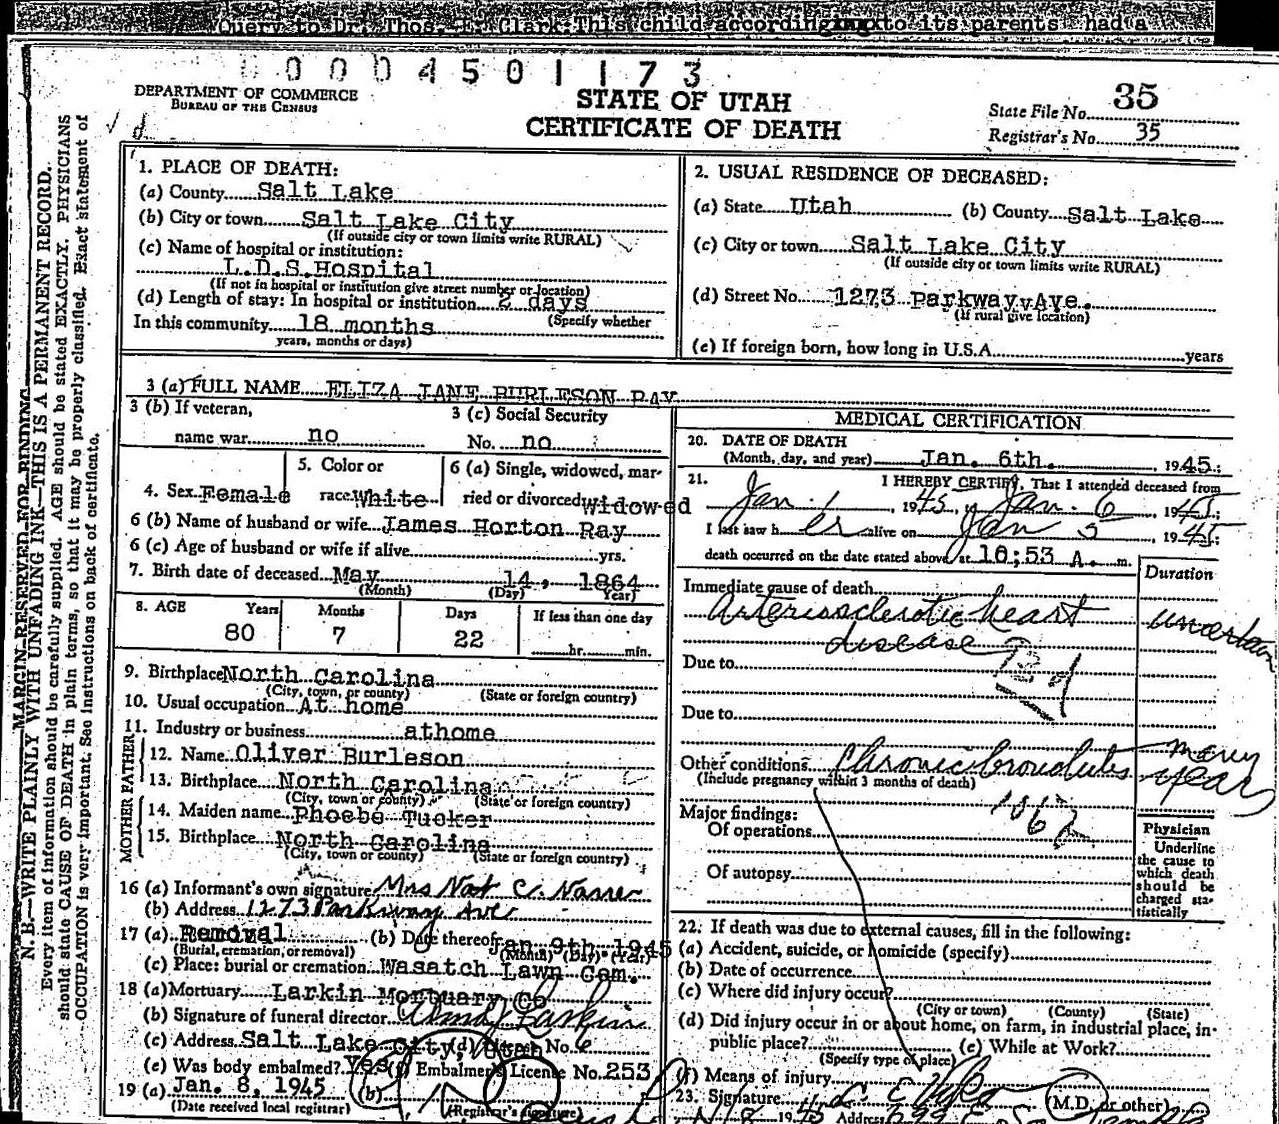 Query to Dr. Thos. E. Clark:This child according to its parents had a
0004501173
DEPARTMENT OF COMMERCE
BUREAU OF THE CENSUS
STATE OF UTAH
CERTIFICATE OF DEATH
State File No. 35
Registrar's No. 35
N. B.—WRITE PLAINLY WITH UNFADING INK—THIS IS A PERMANENT RECORD.
MARGIN RESERVED FOR BINDING
Every item of information should be carefully supplied. AGE should be stated EXACTLY. PHYSICIANS
should state CAUSE OF DEATH in plain terms, so that it may be properly classified. Exact statement of
OCCUPATION is very important. See instructions on back of certificate.
1. PLACE OF DEATH:
(a) County Salt Lake
(b) City or town Salt Lake City
(If outside city or town limits write RURAL)
(c) Name of hospital or institution:
L.D.S.Hospital
(If not in hospital or institution give street number or location)
(d) Length of stay: In hospital or institution 2 days
(Specify whether
In this community 18 months
years, months or days)
2. USUAL RESIDENCE OF DECEASED:
(a) State Utah (b) County Salt Lake
(c) City or town Salt Lake City
(If outside city or town limits write RURAL)
(d) Street No. 1273 Parkway Ave.
(If rural give location)
(e) If foreign born, how long in U.S.A. years
3 (a) FULL NAME ELIZA JANE BURLESON RAY
3 (b) If veteran, 3 (c) Social Security
name war no No. no
4. Sex Female 5. Color or race White 6 (a) Single, widowed, married or divorced widowed
6 (b) Name of husband or wife James Horton Ray
6 (c) Age of husband or wife if alive yrs.
7. Birth date of deceased May 14, 1864
(Month) (Day) (Year)
8. AGE Years Months Days If less than one day
80 7 22 hr. min.
9. Birthplace North Carolina
(City, town, or county) (State or foreign country)
10. Usual occupation At home
11. Industry or business athome
FATHER
12. Name Oliver Burleson
13. Birthplace North Carolina
(City, town or county) (State or foreign country)
MOTHER
14. Maiden name Phoebe Tucker
15. Birthplace North Carolina
(City, town or county) (State or foreign country)
16 (a) Informant's own signature Mrs Nat C.
(b) Address 1273 Parkway Ave
17 (a) Removal (b) Date thereof Jan 9th 1945
(Burial, cremation, or removal) (Month) (Day) (Year)
(c) Place: burial or cremation Wasatch Lawn Cem.
18 (a) Mortuary Larkin Mortuary Co
(b) Signature of funeral director Larkin
(c) Address Salt Lake City, Utah (d) License No. 6
(e) Was body embalmed? Yes (f) Embalmer's License No. 253
19 (a) Jan. 8, 1945 (b)
(Date received local registrar) (Registrar's signature)
MEDICAL CERTIFICATION
20. DATE OF DEATH
(Month, day, and year) Jan. 6th. , 1945.;
21. I HEREBY CERTIFY, That I attended deceased from
Jan. 1, 1945, to Jan. 6, 1945;
I last saw her alive on Jan 5 1945;
death occurred on the date stated above, at 10;53 A. m.
Duration
Immediate cause of death
Arteriosclerotic heart disease uncertain
Due to
Due to
Other conditions Chronic bronchitis many years
(Include pregnancy within 3 months of death)
Major findings:
Of operations
Of autopsy
Physician
Underline
the cause to
which death
should be
charged sta-
tistically
22. If death was due to external causes, fill in the following:
(a) Accident, suicide, or homicide (specify)
(b) Date of occurrence
(c) Where did injury occur?
(City or town) (County) (State)
(d) Did injury occur in or about home, on farm, in industrial place, in-
public place? (e) While at Work?
(Specify type of place)
(f) Means of injury
23. Signature (M.D. or other)
1945 Address